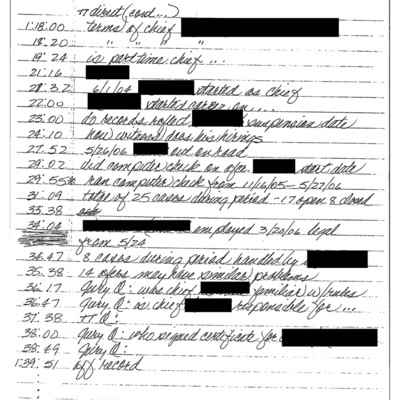 π direct (cont...)
1:18:00 terms of chief
18:20 " " " "
19:24 is part time chief ...
21:16
21:32 6/1/04 started as chief
22:00 started career on ....
23:00 do records reflect suspension date
24:10 how witness does his hirings
27:52 5/26/06 out on road
29:02 did computer check on ofcr. start date
29:55 ran computer check from 11/16/05 - 5/27/06
31:09 total of 25 cases during period - 17 open 8 closed
33:38
34:04 employed 3/20/06 legal
from 5/24
34:47 8 cases during period handled by
35:38 14 ofcrs may have similar problems
36:17 Jury Q: was chief familiar w/rules
36:47 Jury Q: is chief responsible for ...
37:38 JJ Q:
38:00 Jury Q: who signed certificate for
38:49 Jury Q:
1:39:51 off record